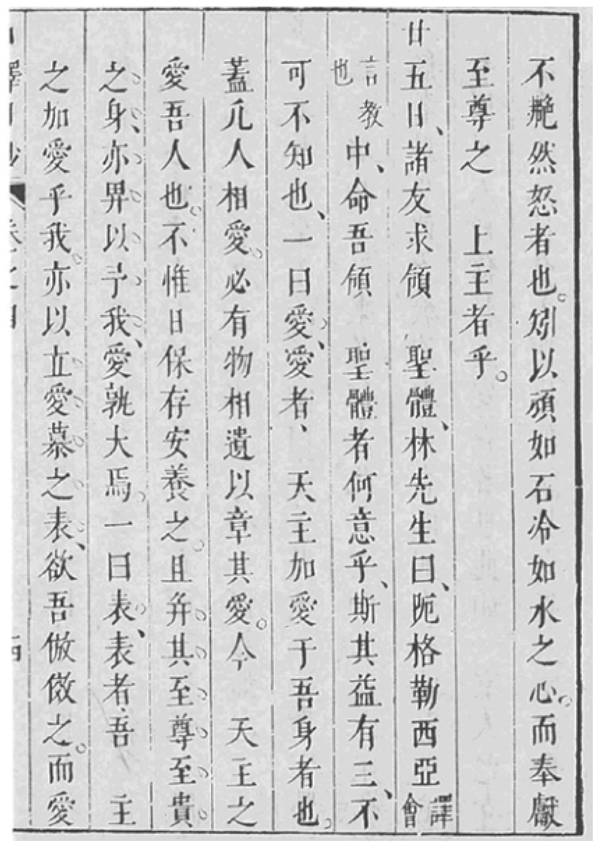 不艴然怒者也。矧以頑如石冷如水之心。而奉獻
至尊之　上主者乎。
廿五日、諸友求領　聖體、林先生曰、阨格勒西亞譯會
言教也中、命吾領　聖體者何意乎、斯其益有三、不
可不知也、一曰愛、愛者、　天主加愛于吾身者也。
蓋凢人相愛。必有物相遺以章其愛。今　天主之
愛吾人也。不惟日保存安養之。且弁其至尊至貴。
之身、亦畀以予我、愛孰大焉。一曰表、表者、吾　主
之加愛乎我。亦以立愛慕之表、欲吾倣傚之。而愛